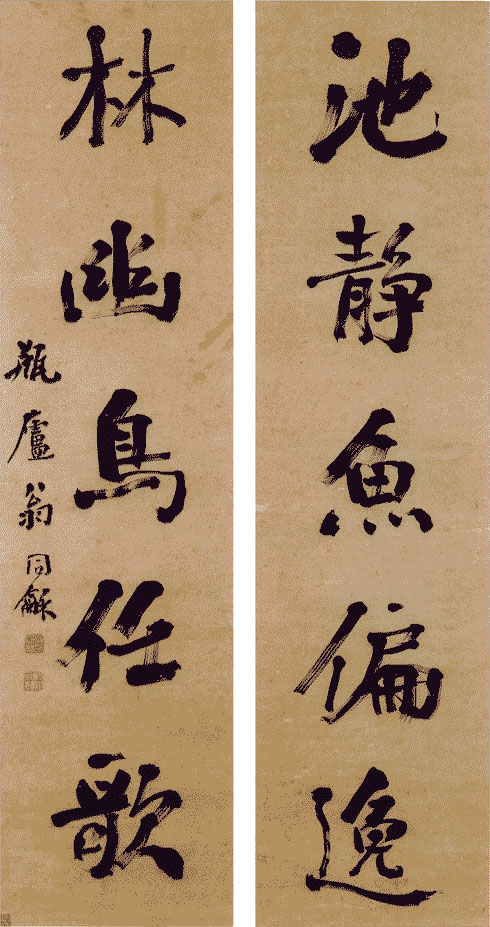 池靜魚偏逸
林幽鳥任歌
瓶廬翁同龢